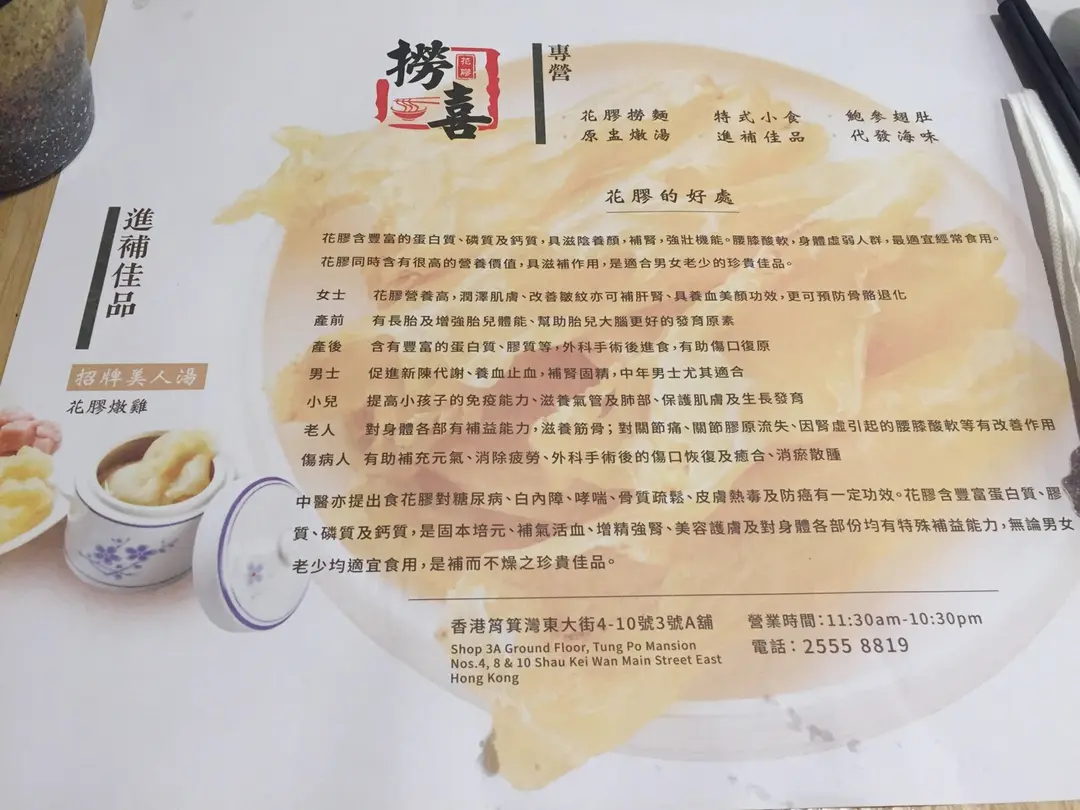 撈喜
花膠
專營
花膠撈麵 特式小食 鮑參翅肚
原盅燉湯 進補佳品 代發海味
進補佳品
招牌美人湯
花膠燉雞
花膠的好處
花膠含豐富的蛋白質、磷質及鈣質，具滋陰養顏，補腎，強壯機能。腰膝酸軟，身體虛弱人群，最適宜經常食用。
花膠同時含有很高的營養價值，具滋補作用，是適合男女老少的珍貴佳品。
女士 花膠營養高，潤澤肌膚、改善皺紋亦可補肝腎、具養血美顏功效，更可預防骨骼退化
產前 有長胎及增強胎兒體能、幫助胎兒大腦更好的發育原素
產後 含有豐富的蛋白質、膠質等，外科手術後進食，有助傷口復原
男士 促進新陳代謝、養血止血，補腎固精，中年男士尤其適合
小兒 提高小孩子的免疫能力、滋養氣管及肺部、保護肌膚及生長發育
老人 對身體各部有補益能力，滋養筋骨；對關節痛、關節膠原流失、因腎虛引起的腰膝酸軟等有改善作用
傷病人 有助補充元氣、消除疲勞、外科手術後的傷口恢復及癒合、消瘀散腫
中醫亦提出食花膠對糖尿病、白內障、哮喘、骨質疏鬆、皮膚熱毒及防癌有一定功效。花膠含豐富蛋白質、膠
質、磷質及鈣質，是固本培元、補氣活血、增精強腎、美容護膚及對身體各部份均有特殊補益能力，無論男女
老少均適宜食用，是補而不燥之珍貴佳品。
香港筲箕灣東大街4-10號3號A舖
Shop 3A Ground Floor, Tung Po Mansion
Nos.4, 8 & 10 Shau Kei Wan Main Street East
Hong Kong
營業時間：11:30am-10:30pm
電話：2555 8819